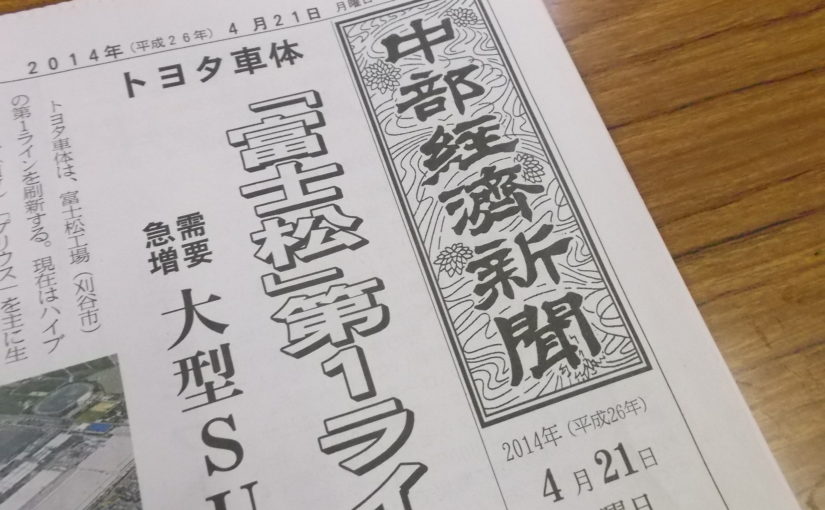 2014年(平成26年)4月21日 月曜
中部経済新聞
2014年(平成26年)
4月21日
トヨタ車体
「富士松」第1ライ
需要
急増
大型SU
トヨタ車体は、富士松工場(刈谷市)
の第1ラインを刷新する。現在はハイブ
プリウス」を主に生